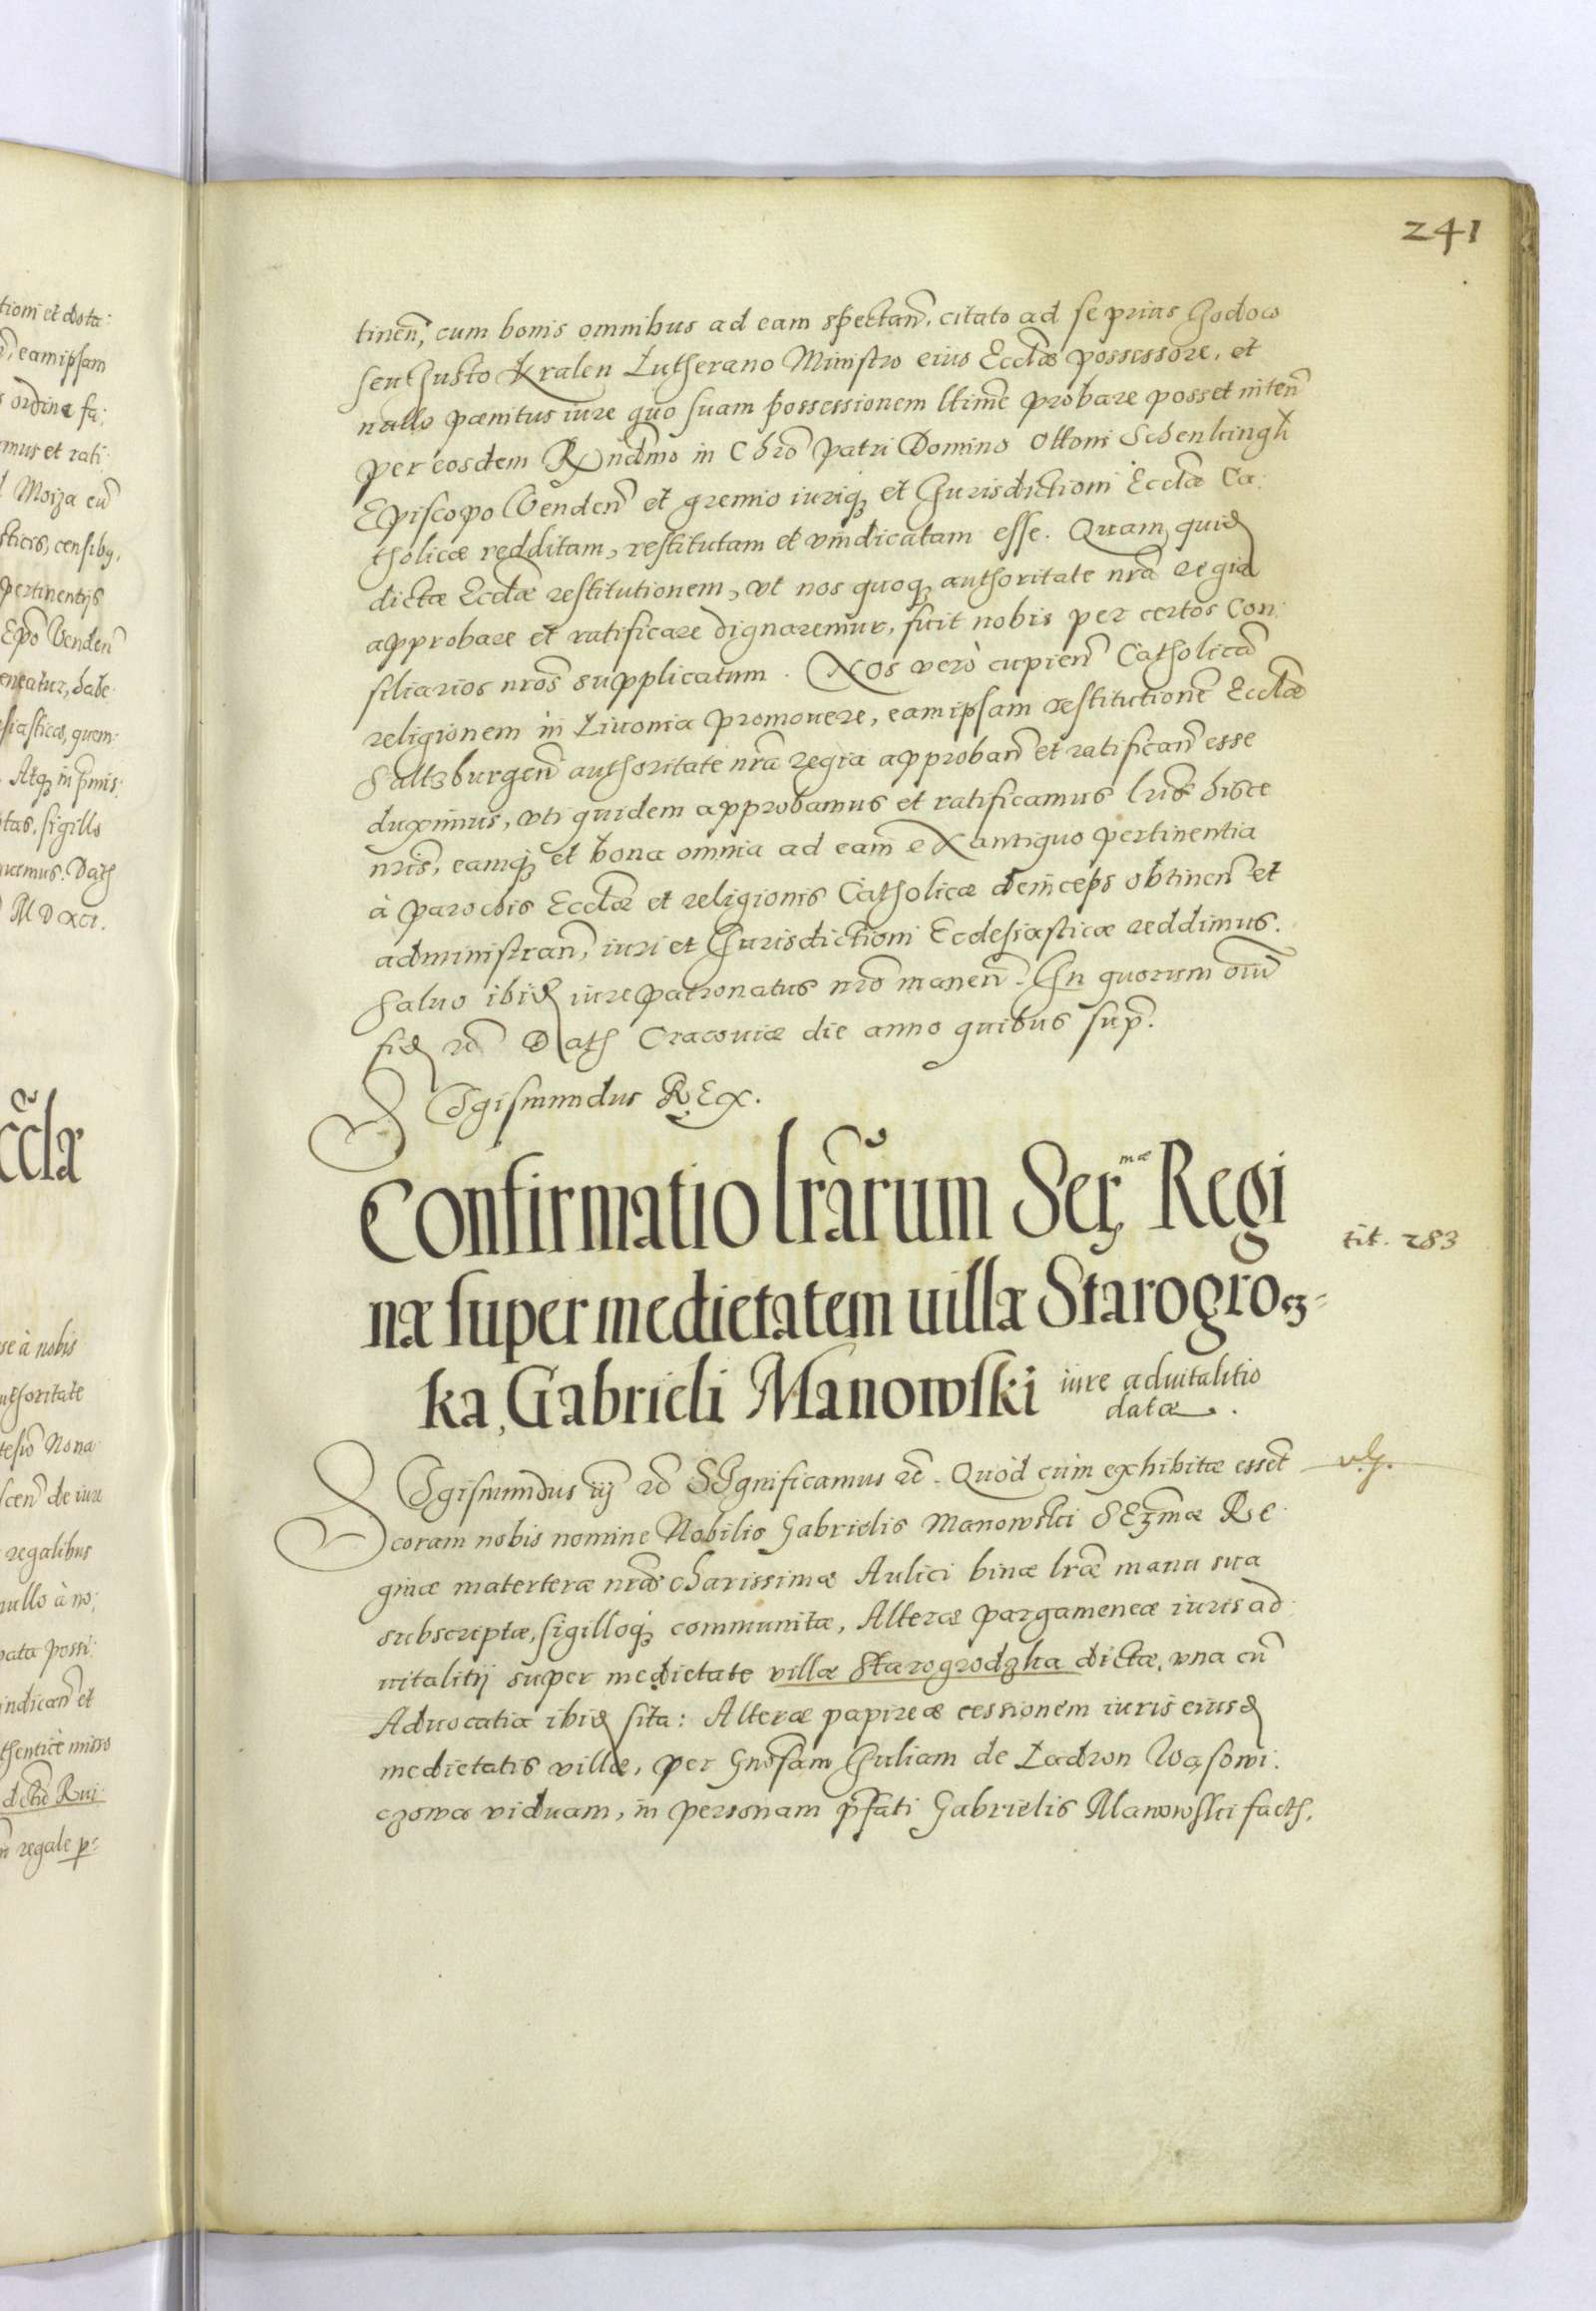 241
tinen̄, cum bonis omnibus ad eam spectan̄, citato ad se prius Jodoco
seu Justo Kralen Lutherano Ministro eius Ecclæ possessore, et
nullo pænitus iure quo suam possessionem ltimē probare posset niten̄
per eosdem Rndmo in Chrō Patri Domino Ottoni Schenkingk
Episcopo Venden̄ et gremio iuriq; et Jurisdictioni Ecclæ Ca:
tholicæ redditam, restitutam et vindicatam esse. Quam quid
dictæ Ecclæ restitutionem, vt nos quoq; authoritate nrā regia
approbare et ratificare dignaremur, fuit nobis per certos Con:
siliarios nros supplicatum. Nos verò cupien̄ Catholicā
religionem in Liuonia promouere, eam ipsam restitutionē Ecclæ
Saltzburgen̄ authoritate nrā regia approban̄ et ratifican̄ esse
duximus, vti quidem approbamus et ratificamus lris hisce
nris, eamq; et bona omnia ad eam ex antiquo pertinentia
à parochis Ecclæ et religionis Catholicæ deinceps obtinen̄ et
administran̄, iuri et Jurisdictioni Ecclesiasticæ reddimus.
Saluo ibid iure patronatus nro manen̄. In quorum oīu
fid rē Dat Cracouiæ die anno quibus sup.
Sigismundus Rex.
Confirmatio lrārum Ser,mæ Regi
næ super medietatem uillæ Starogroz=
ka, Gabrieli Manowski iure aduitalitio
datæ.
tit. 283
Sigismundus iij rē Significamus rē. Quòd cùm exhibitæ essēt
coram nobis nomine Nobilis Gabrielis Manowski Sermæ Re:
ginæ materteræ nræ charissimæ Aulici binæ lræ manu sua
subscriptæ, sigilloq; communitæ, Alteræ pargameneæ iuris ad:
uitalitij super medietate villæ Starogrodzka dictæ, vna cū
Aduocatia ibid sita: Alteræ papireæ cessionem iuris eiusd
medietatis villæ, per Gnosam Juliam de Ladron Wąsowi:
czowa viduam, in personam pfati Gabrielis Manowski fact,